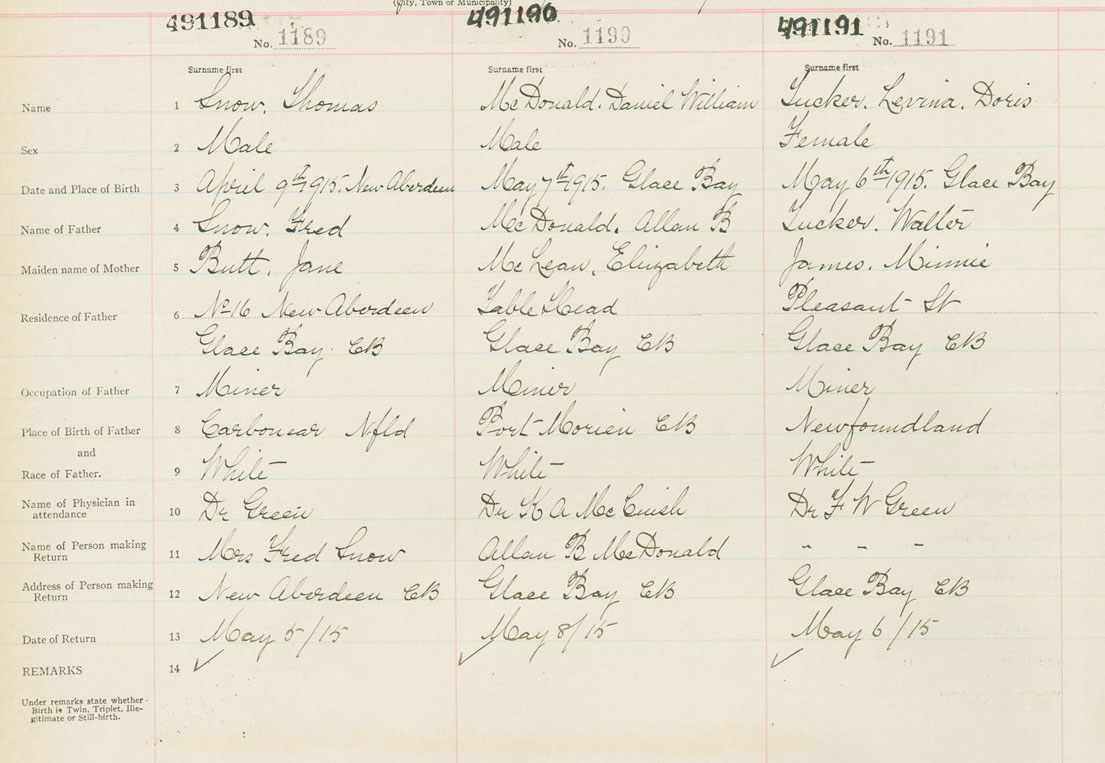 (City, Town or Municipality)
491189 491190 491191
No. 1189 No. 1190 No. 1191
Surname first Surname first Surname first
Name 1 Snow, Thomas McDonald. Daniel William Tucker. Levina. Doris
Sex 2 Male Male Female
Date and Place of Birth 3 April 9th 1915. New Aberdeen May 7th 1915. Glace Bay May 6th 1915. Glace Bay
Name of Father 4 Snow, Fred McDonald. Allan B Tucker. Walter
Maiden name of Mother 5 Butt, Jane McLean, Elizabeth James. Minnie
Residence of Father 6 No 16 New Aberdeen Table Head Pleasant St
Glace Bay CB Glace Bay CB Glace Bay CB
Occupation of Father 7 Miner Miner Miner
Place of Birth of Father 8 Carbonear Nfld Port Morien CB Newfoundland
and
Race of Father. 9 White White White
Name of Physician in
attendance 10 Dr Green Dr K A McCuish Dr F W Green
Name of Person making
Return 11 Mrs Fred Snow Allan B McDonald " " "
Address of Person making
Return 12 New Aberdeen CB Glace Bay CB Glace Bay CB
Date of Return 13 May 5/15 May 8/15 May 6/15
REMARKS 14 ✓ ✓ ✓
Under remarks state whether
Birth is Twin, Triplet, Ille-
gitimate or Still-birth.